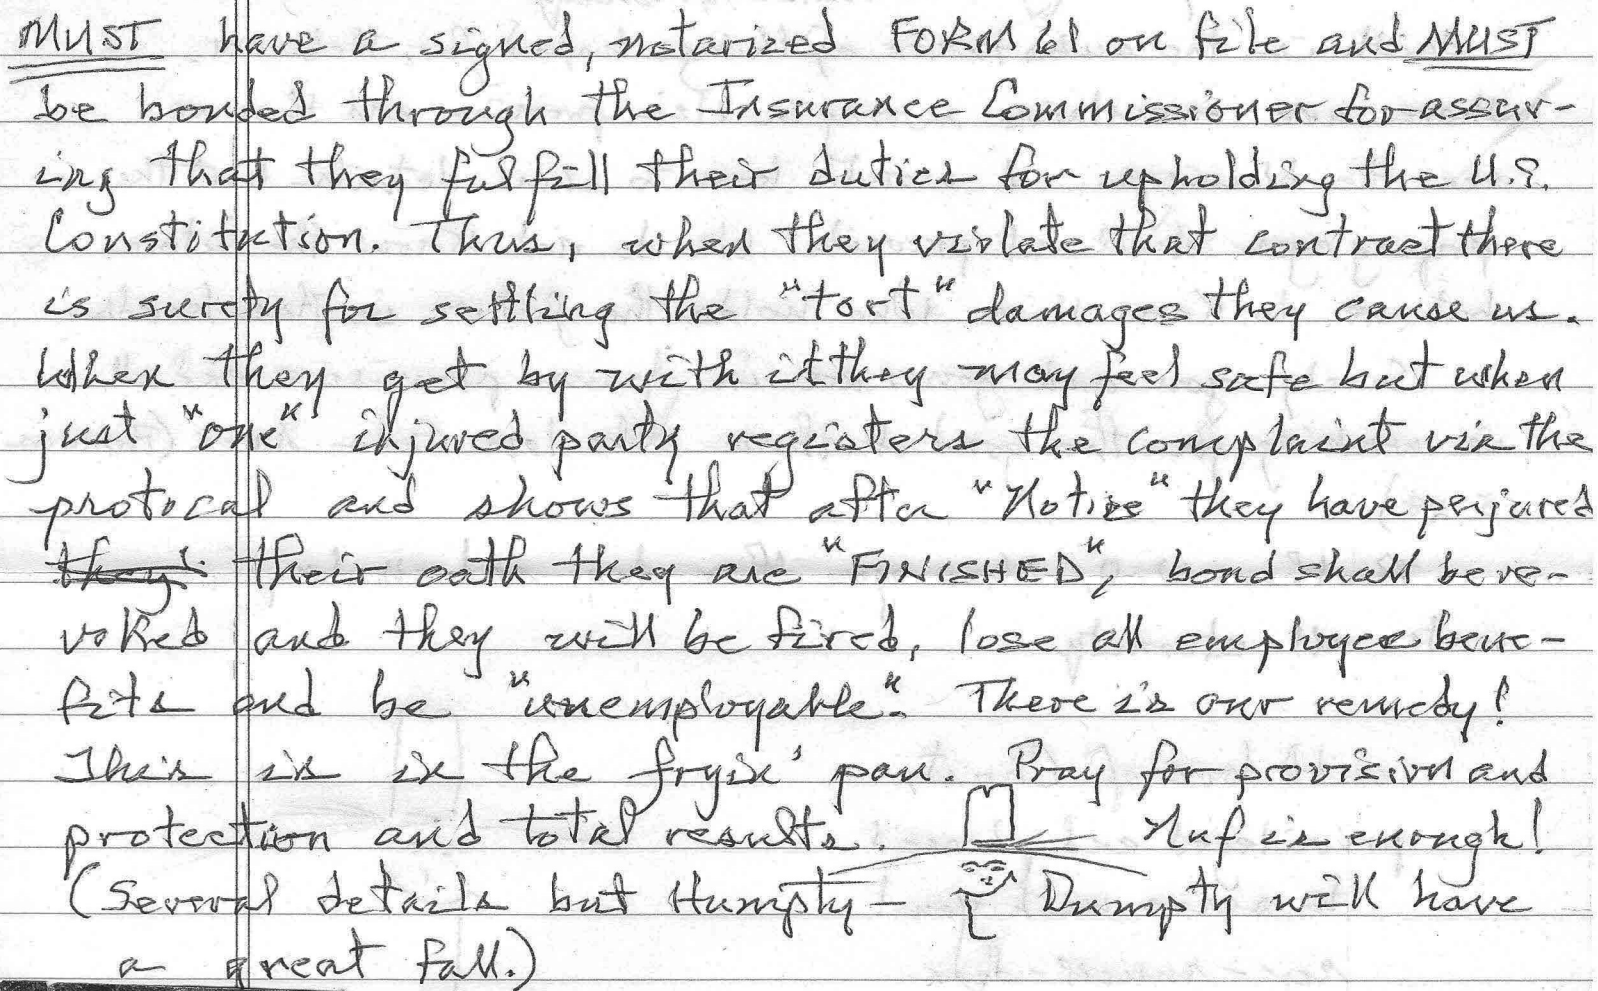 MUST have a signed, notarized FORM 61 on file and MUST
be bonded through the Insurance Commissioner for assur-
ing that they fulfill their duties for upholding the U.S.
Constitution. Thus, when they violate that contract there
is surety for settling the "tort" damages they cause us.
When they get by with it they may feel safe but when
just "one" injured party registers the complaint via the
protocal and shows that after "Notice" they have perjured
they their oath they are "FINISHED", bond shall be re-
voked and they will be fired, lose all employee bene-
fits and be "unemployable". There is our remedy!
This is in the fryin' pan. Pray for provision and
protection and total results. Nuf is enough!
(Several details but Humpty- Dumpty will have
a great fall.)